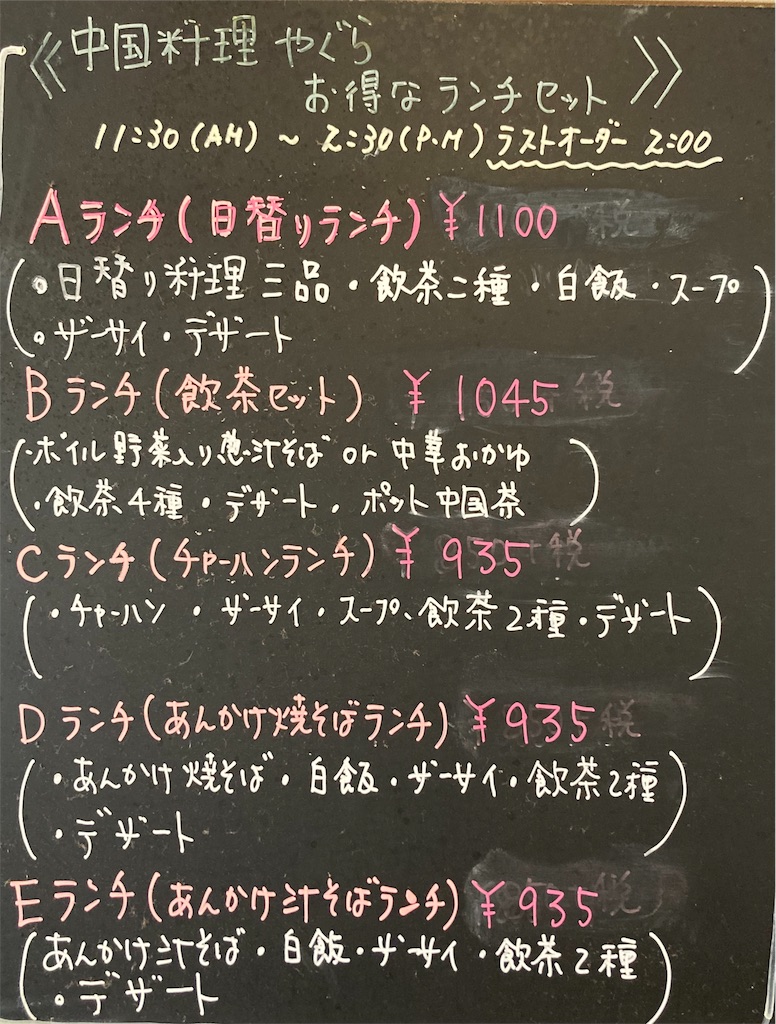 《中国料理 やぐら
お得なランチセット》
11:30(AM) ~ 2:30(P.M) ラストオーダー 2:00
Aランチ(日替りランチ) ¥1100 税
・日替り料理三品・飲茶二種・白飯・スープ
・ザーサイ・デザート
Bランチ(飲茶セット) ¥1045 税
・ボイル野菜入り葱汁そば or 中華おかゆ
・飲茶4種・デザート・ポット中国茶
Cランチ(チャーハンランチ) ¥935 税
・チャーハン・ザーサイ・スープ、飲茶2種・デザート
Dランチ(あんかけ焼そばランチ) ¥935 税
・あんかけ焼そば・白飯・ザーサイ・飲茶2種
・デザート
Eランチ(あんかけ汁そばランチ) ¥935 税
あんかけ汁そば・白飯・ザーサイ・飲茶2種
・デザート